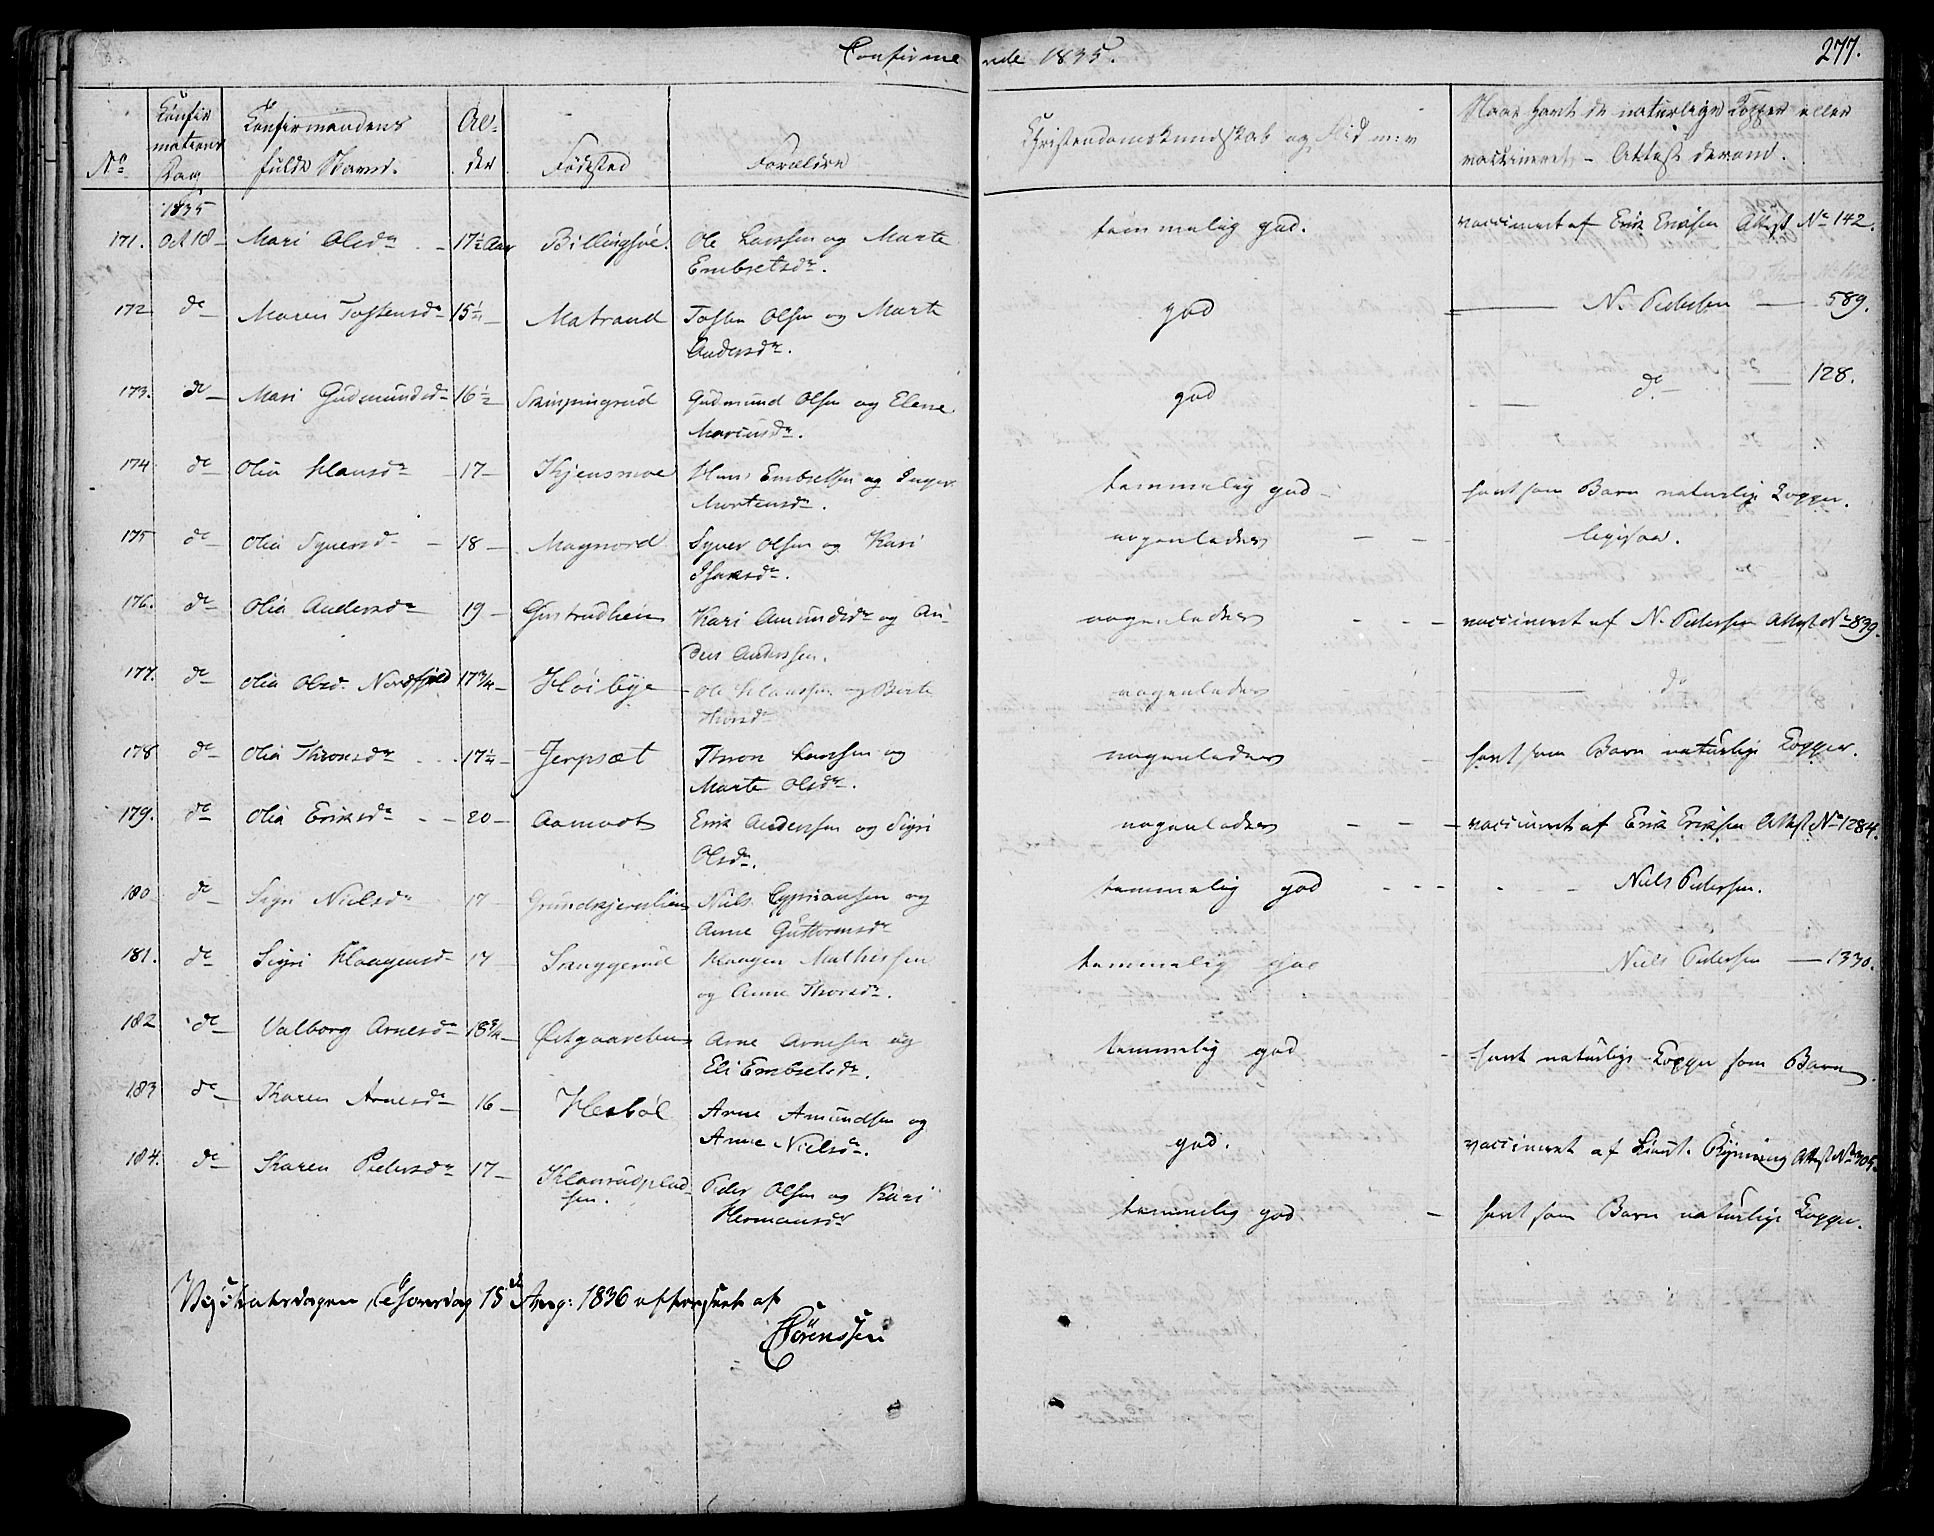 Confirmerede 1835.
277.
No
Konfirmations Dag
Konfirmandens fulde Navn.
Alder
Fødested
Forældre
Christendomskundskab og Flid m: v
Naar havt de naturlige Kopper eller vaccineret – Attest derom.
1835
171. Oct 18 – Mari Olsdr – 17½ Aar Billingsøe. Ole Larssen og Marte Embretsdr. temmelig god. vaccineret af Erik Eriksen Attest No 142.
172 do – Maren Tostensdr 15½ – Matrand Tosten Olsen og Marte Andersdr. god — N. Pedersen — 589.
173. do – Mari Gudmundsdr 16½ Skinpingrud Gudmund Olsen og Elene Mariusdr. god — do – 128.
174 do – Olia Hansdr – 17 – Kjensmoe Hans Embretsen og Inger Mortensdr. temmelig god – havt som Barn naturlige Kopper.
175 do – Olia Syversdr – 18 – Magnord Syver Olsen og Kari Isaksdr. nogenledes – – ligesaa.
176. do – Olia Andersdr 19 – Gustrudheien Kari Amundsdr og Anders Andersen. nogenledes – – – vaccineret af N. Pedersen Attest No 839.
177. do – Olia Olsdr Nordfjeld 17¾ – Høibye – Ole Hanssen og Berte Thorsdr nogenledes — do
178 do – Olia Thronsdr . . . 17¼ – Jerpsæt Thron Larssen og Marte Olsdr. nogenledes – havt som Barn naturlige Kopper.
179. do – Olia Eriksdr – – 20 – Aamodt Erik Andersen og Sigri Olsdr. nogenledes – – – vaccineret af Erik Eriksen Attest No 1284.
180 do – Sigri Nielsdr 17 – Grundkjernlien Niels Cypriansen og Anne Guttormsdr temmelig god – – – – – Niels Pedersen.
181. do Sigri Haagensdr 17 – Skuggerud Haagen Mathissen og Anne Thorsdr. temmelig god Niels Pedersen — 1330.
182 do – Valborg Arnesdr 18¾ – Østgaarebun Arne Arnesen og Eli Embretsdr. temmelig god – havt naturlige Kopper som Barn.
183 do – Karen Arnesdr 16 – Hesbøl Arne Amundsen og Anne Nielsdr. god. vaccineret af Lieut. Ryning Attest No 305.
184. do – Karen Pedersdr 17 – Haurudpladsen. Peder Olsen og Kari Hermansdr temmelig god – havt som Barn naturlige Kopper.
15de Aug: 1836 efterseet af
Sörenssen